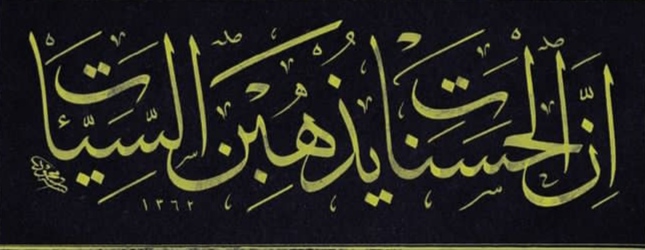 اِنَّ الحسنات يذهبن السيّئات
١٣٦٢